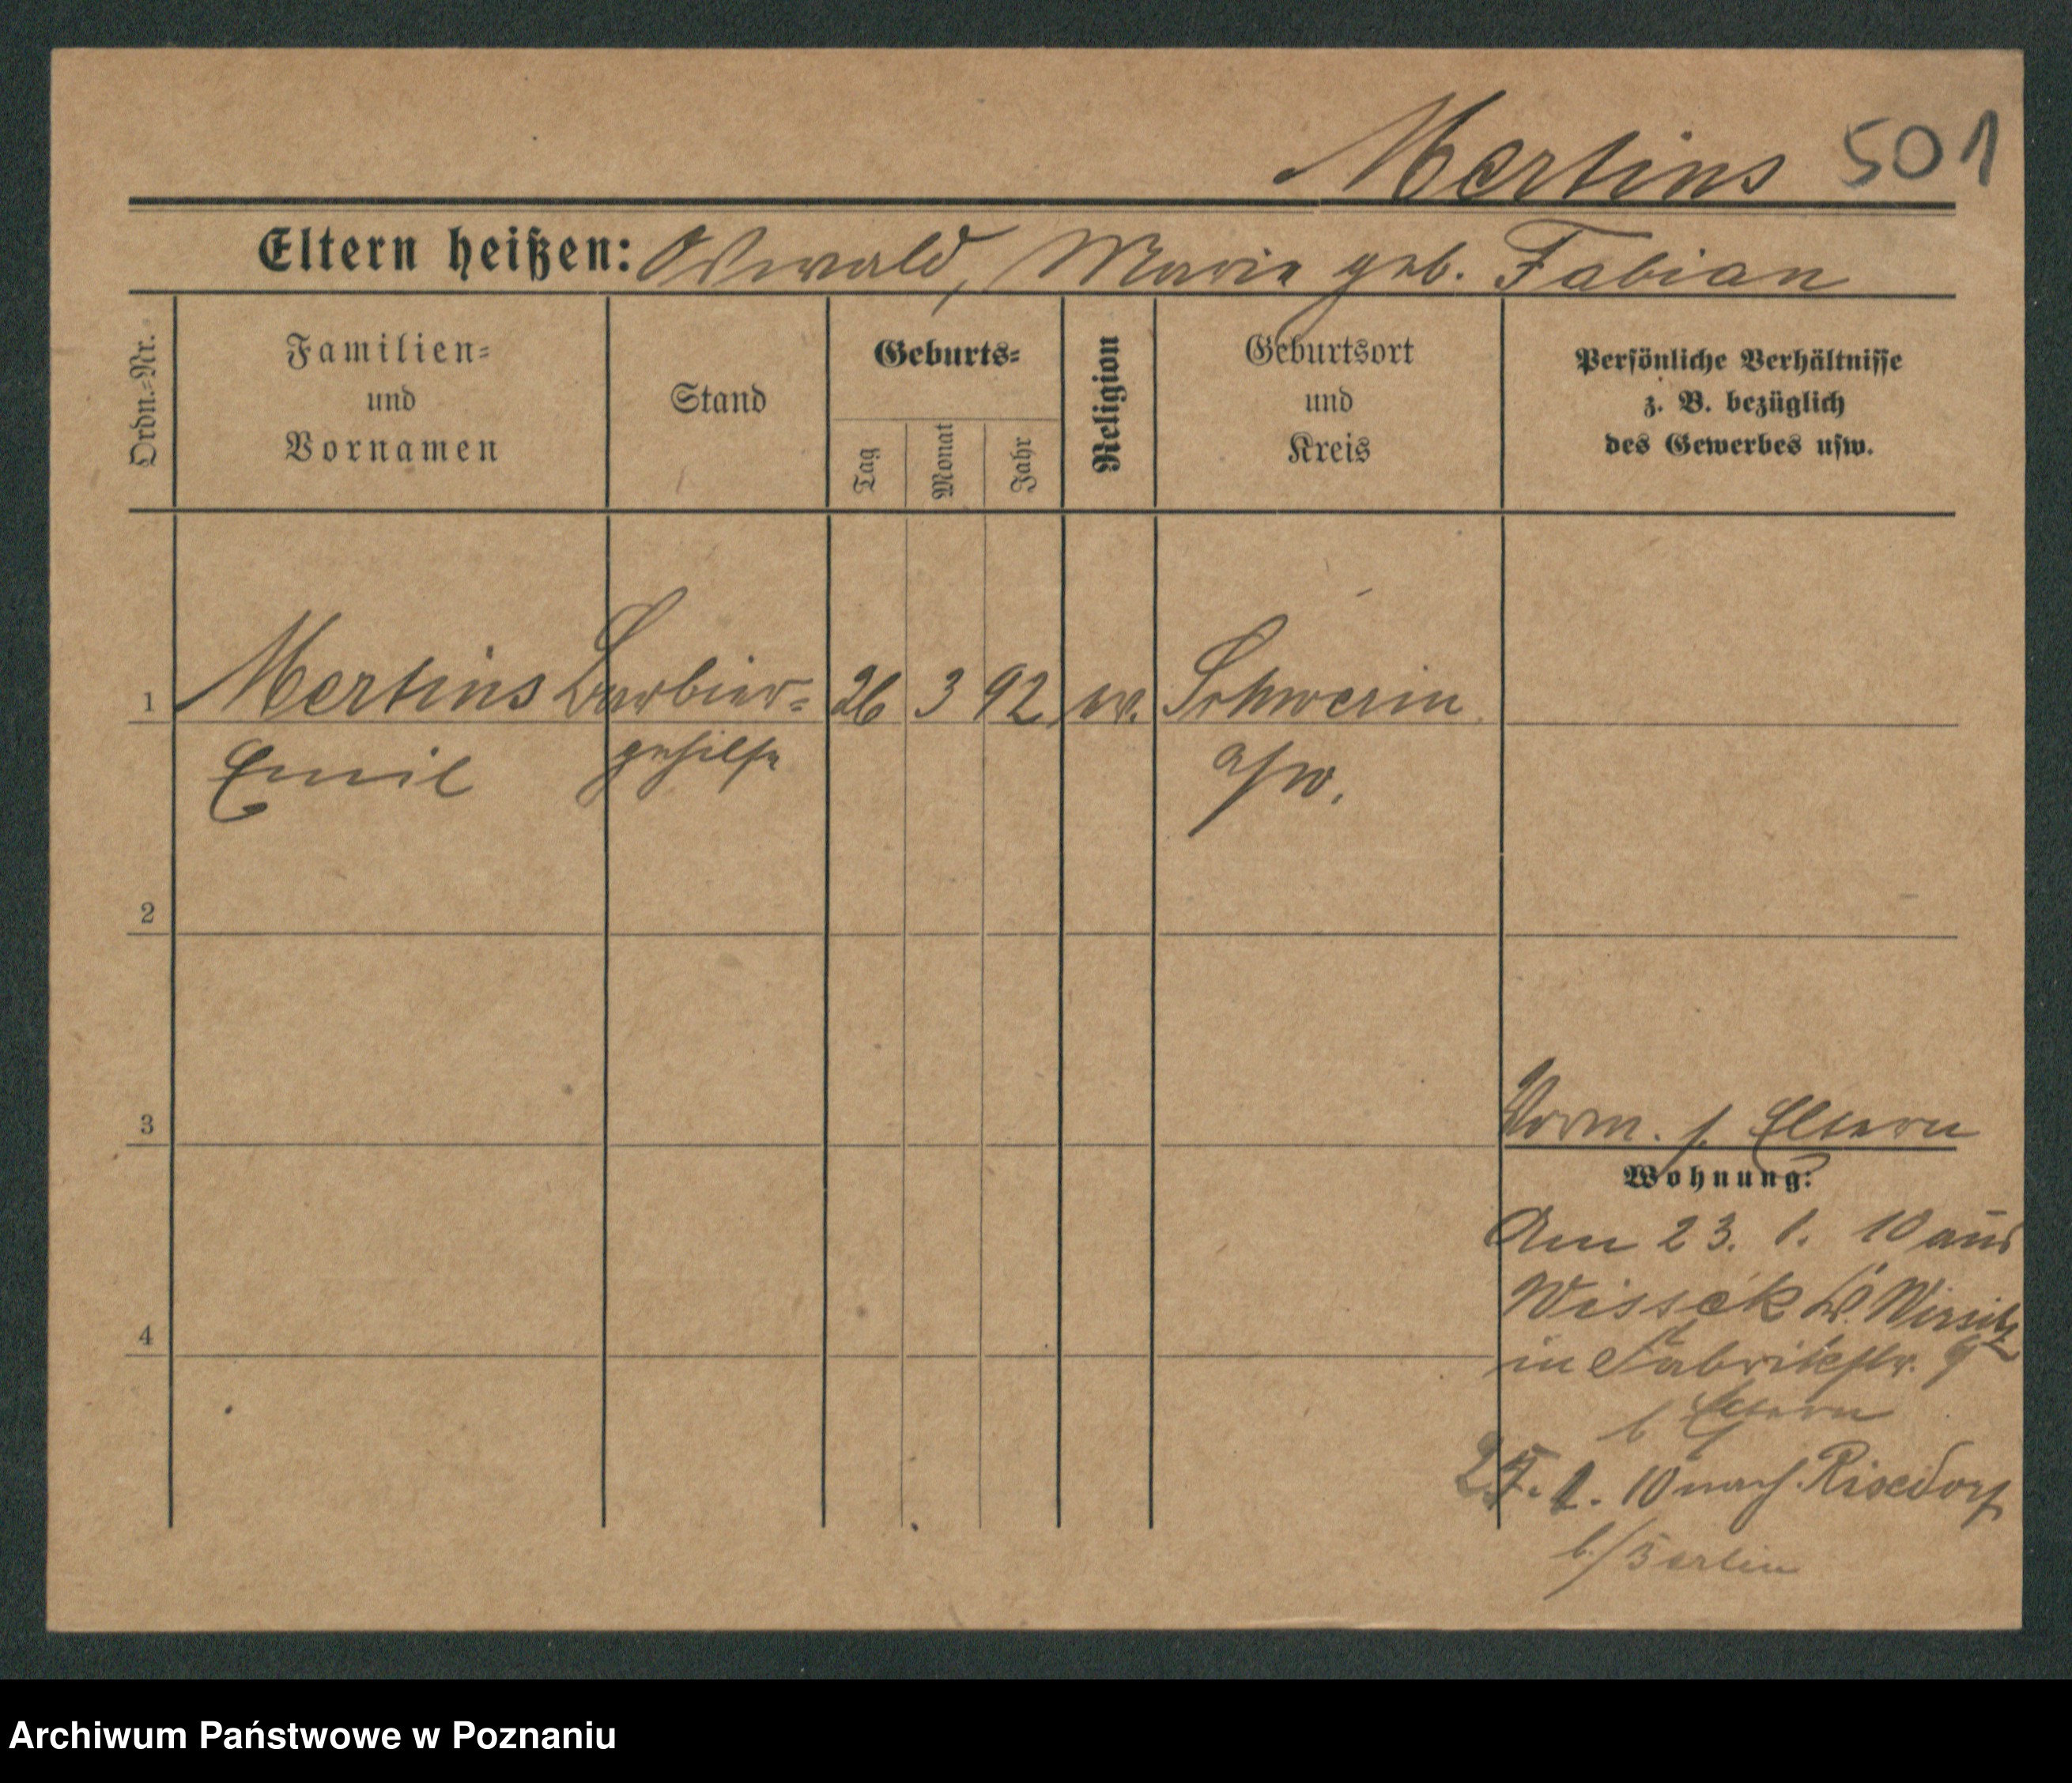 Mertins 501
Eltern heißen: Oswald, Marie geb. Fabian
Ordn.=Nr.
Familien=
und
Vornamen
Stand
Geburts=
Tag
Monat
Jahr
Religion
Geburtsort
und
Kreis
Persönliche Verhältnisse
z. B. bezüglich
des Gewerbes usw.
1 Mertins Barbier= 26 3 92 ev. Schwerin
Emil gehilfe a/w.
2
3
Vorm. s. Eltern
Wohnung:
Am 23. 1. 10 aus
4
Wissek Kr. Wirsitz
in Fabrikstr. 9
b Eltern
1. 10 nach Rixdorf
b/Berlin
Archiwum Państwowe w Poznaniu